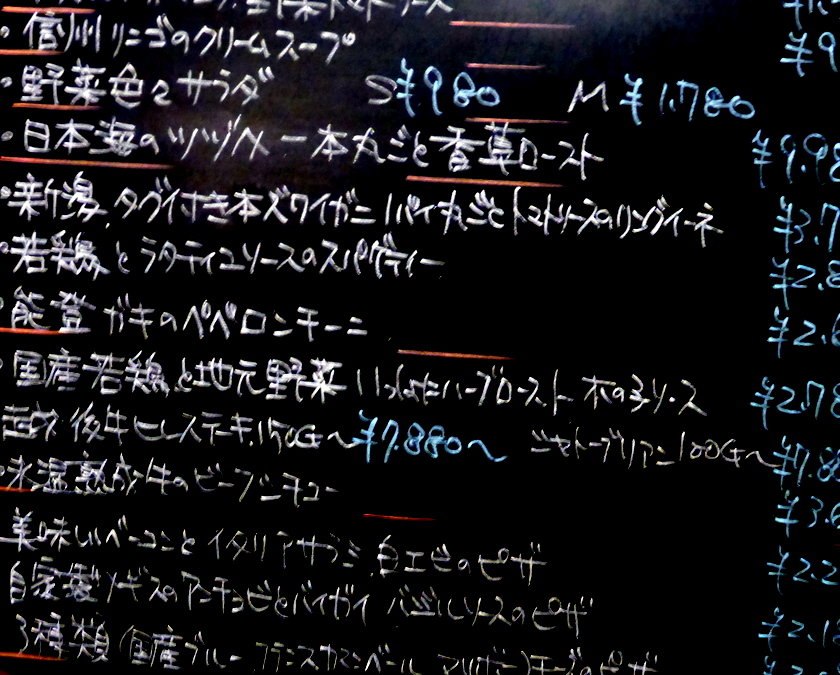 信州リンゴのクリームスープ ¥9
野菜色々サラダ S¥980 M¥1.780
・日本海のツヅメ一本丸ごと香草ロースト ¥9.98
・新潟、タグイ付き本ズワイガニ1パイ丸ごとトマトソースのリングイーネ ¥3.7
・若鶏とラタティユソースのスパゲティー ¥2.8
・能登ガキのペペロンチーニ ¥2.6
・国産若鶏と地元野菜いっぱいハーブロースト 木の子ソース ¥2.78
後牛ヒレステーキ150G〜¥7.880〜 シャトーブリアン100G〜¥7.88
・氷温熟成牛のビーフシチュー ¥3.6
美味しいベーコンとイタリアサラミ、白エビのピザ ¥2.2
自家製のアンチョビとバイガイ バジルソースのピザ ¥2.1
3種類 国産ブルーフランスカマンベール チーズのピザ